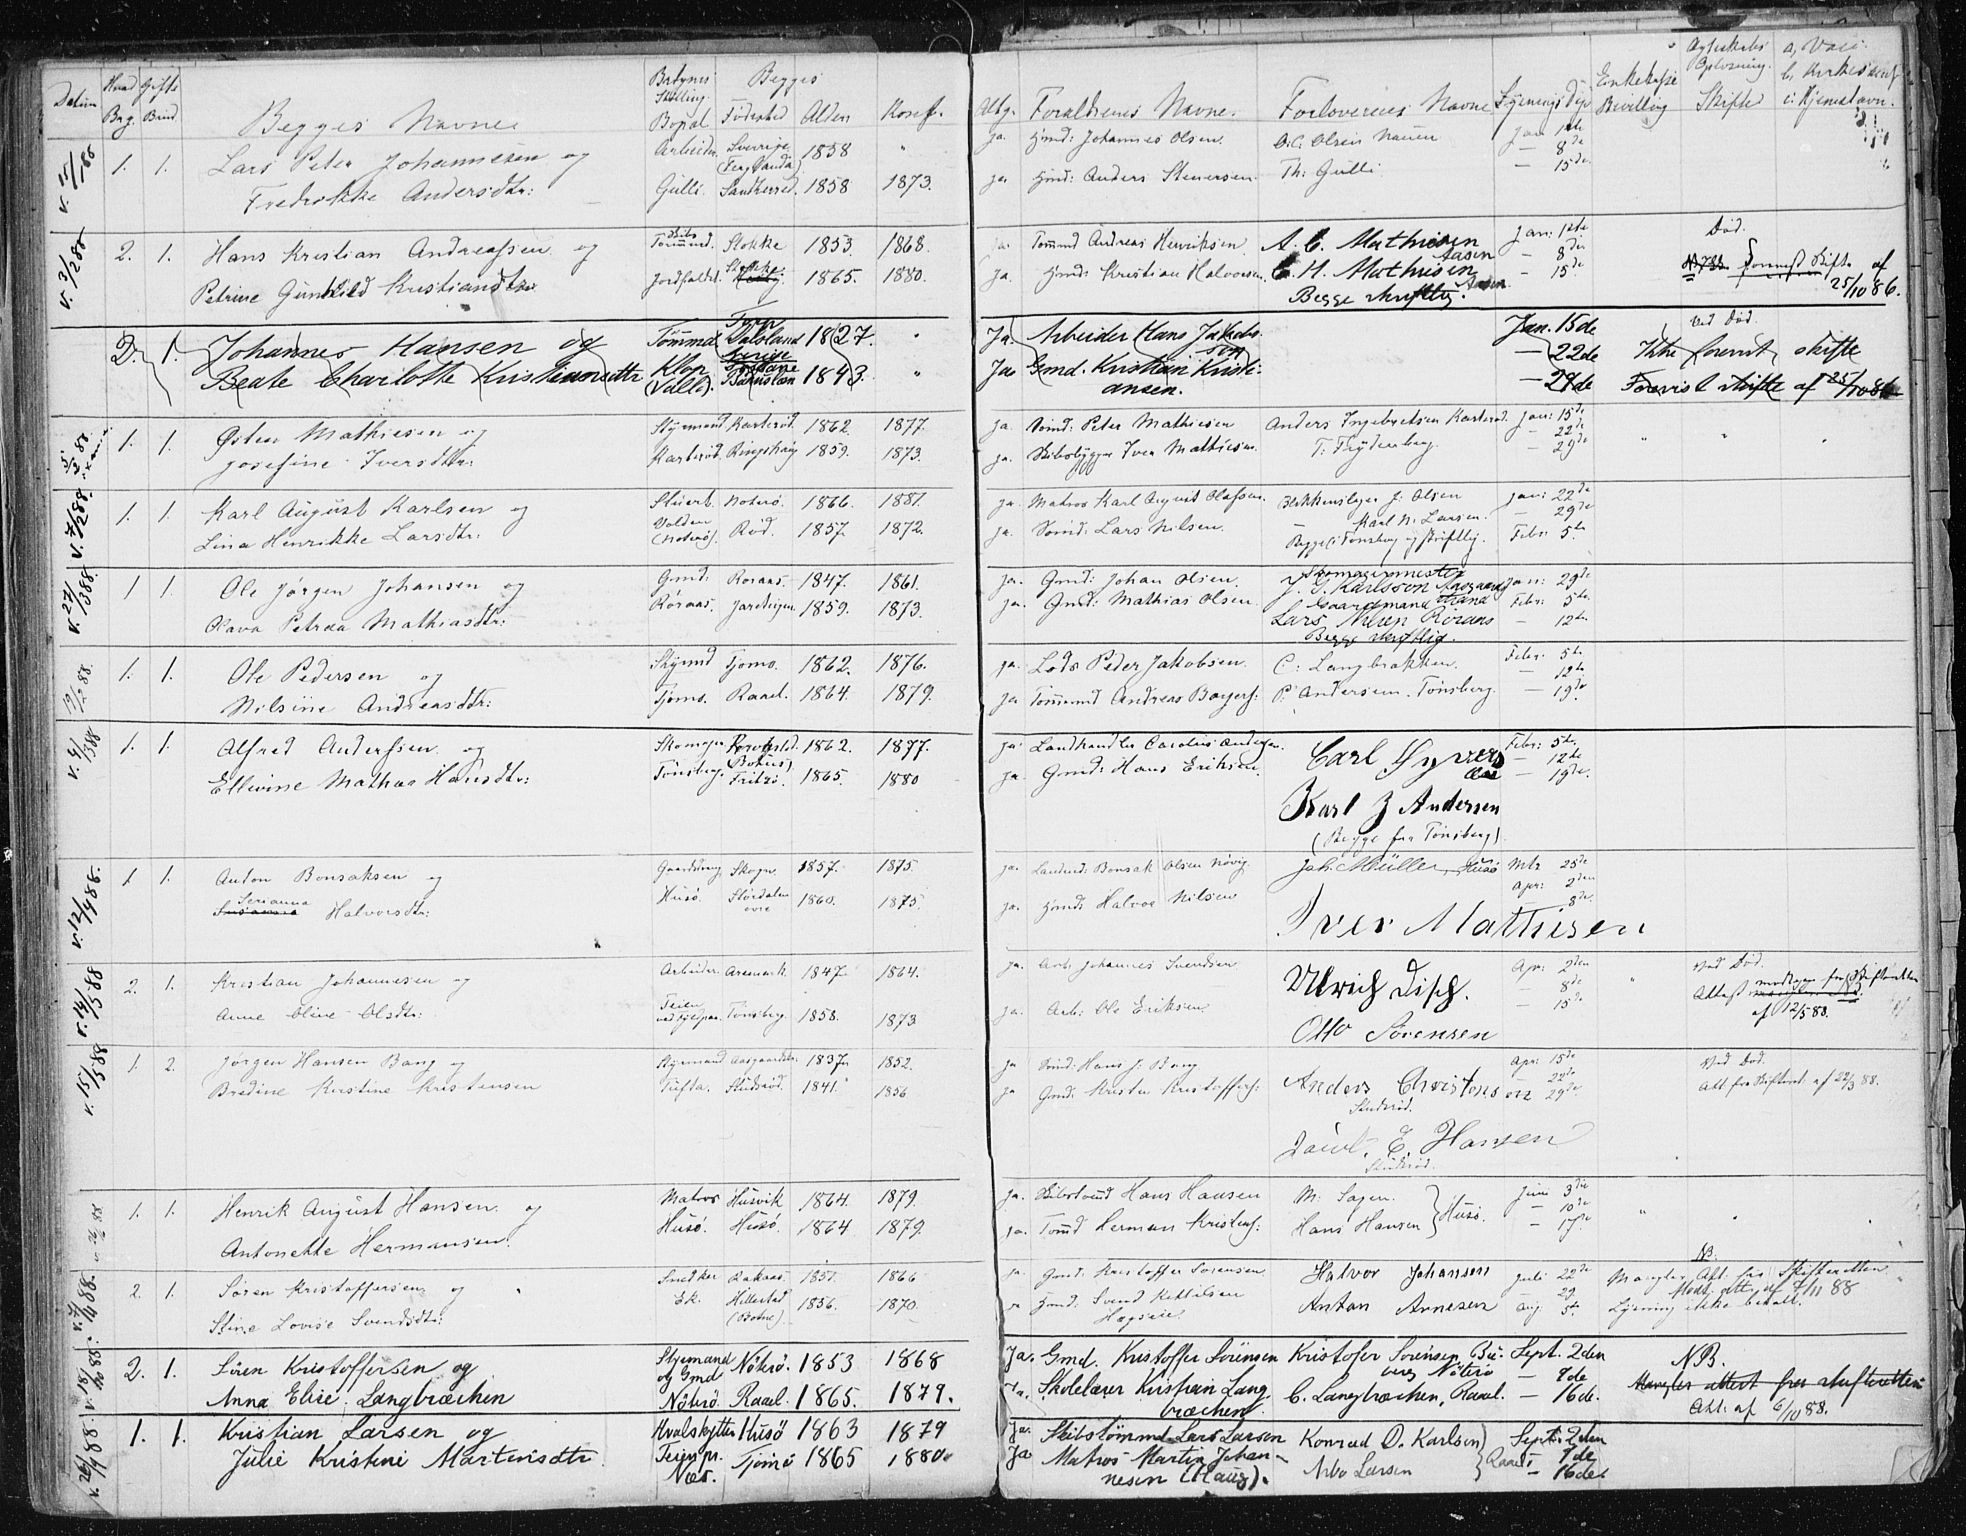 Datum Hvad Gifte Begges Navne. Bstyns Stilling. Begges Attg. Forældrenes Navne. Forloverens Navne Lysnings Dge Enkekasse Ægteskabs Opløsning. a, Vacc.
Brg. Brud Bopæl Fødested Alder Konf. Bevilling Skifte c: Hjemstavn.
v. 15/1 88 1. 1. Lars Peter Johannesen og Arbeider. Sverige 1858 " ja Gmd: Johannes Olsen. O.C. Olsen Nauen Jan 1ste
(Fergelanda) — 8de
Fredrikke Andersdtr: Gulli. Sandherred. 1858 1873. ja Gmd: Anders Steversen Th: Gulli — 15de
v. 3/2 88 2. 1. Hans Kristian Andreassen og Skibs Tømmd. Stokke 1853. 1868. ja. Tommd Andreas Henriksen A. C. Mathiesen Aasen Jan: 1ste Død.
— 8de
Petrine Gunhild Kristiandtr Jordfaldet. Stokke 1865. 1880. ja. Gmd: Kristian Halvorsen. C. H. Mathisen Aasen — 15de Skifte af
Begge skriftlig. 25/10 86.
2. 1. Johannes Hansen og Tømmd Dalsland 1827. " Ja. Arbeider Hans Jakobsson Jan. 15de Ved Død.
Sverige — 22de Ikke forevist skifte
Beate Charlotte Kristiansdtr Klop (Valle). Bahuslæn 1843. " Ja Gmd. Kristian Kristiansen. — 29de Forevist skifte af 25/10 86
5/2 88. 1. 1. Østen Mathiesen og Styrmand Karterød. 1862. 1877 ja. Smd: Peter Mathiesen Anders Ingebretsen Karterød. Jan: 15de
— 22de
Josefine Iversdtr: Karterød. Ringshaug 1859. 1873. ja. Skibsbygger Iver Mathiesen. T. Frydenberg. — 29de
v. 7/2 88. 1. 1. Karl August Karlsen og Stuert. Noterø. 1866. 1881. ja. Matros Karl August Olafsen. Blikkenslager J. Olsen Jan: 22de
Volden Karl N. Larsen. — 29de
Lina Henrikke Larsdtr: (Noterø). Rød. 1857. 1872. ja. Smd: Lars Nilsen. Begge i Tønsberg og skriftlig. Febr: 5te
v. 27/1 388. 1 1. Ole Jørgen Johansen og Gmd: Roraas. 1847. 1861. ja. Gmd: Johan Olsen. Skomagermester Jan: 29de
J. E. Karlsson Aasgaardstrand
Olava Petrea Mathiasdtr: Roraas. Jareteigen. 1859. 1873. ja. Gmd: Mathias Olsen. Gaardmand Febr: 5te
Lars Nilsen Roraas — 12te
Begge skriftlig.
19/2 88 1. 1. Ole Pedersen og Styrmd Tjømø. 1862. 1876. ja. Lods Peder Jakobsen. C: Langbrakken. Febr: 5te
— 12te
Nilsine Andreasdtr: Tjømø. Raael. 1864. 1879. ja Tommnd Andreas Borgers: P. Andersen. Tønsberg. — 19de
v. 4/1388 1. 1. Alfred Anderssen og Skomager. 1862. 1877. ja Landhandler Carolius Andersen. Carl Syvers Febr: 5te
(Botne) — 12te
Ellevine Mathea Hansdtr: Tønsberg. Fritzø. 1865. 1880 ja. Gmd: Hans Eriksen. — 19de.
Karl J Andersen
(Begge fra Tønsberg).
v. 12/4 88. 1. 1. Anton Bonsaksen og Gaardbrug Skogn. 1857. 1875. ja. Landmd: Bonsak Olsen Növig. Joh: Müller, Husø Mts 25de
Serianna Apr: 2den
Halvorsdtr: Husø. Størdalen øvre 1860. 1875. ja. Gmd: Halvor Nilsen — 8de.
Iver Mathisen
v. 14/5 88 2. 1. Kristian Johannesen og Arbeider. Aremark. 1847. 1864. ja. Arb. Johannes Svendsen Ulrich Disch. Apr: 2den Ved Død.
— 8de " Attest modtagen fra Skifteretten
Anne Oline Olsdtr: Teien Tønsberg. 1858. 1873 ja. Arb: Ole Eriksen — 15de af 12/5 88.
Otto Sørensen
v. 15/5 88 1. 2. Jørgen Hansen Bang og Styrmand Aasgaardstr: 1837. 1852. ja Smd: Hans J. Bang Apr: 15de Ved Død.
Bredine Kristine Kristensen Tufta. Studsrød. 1841. 1856 ja Gmd: Kristen Kristoffers: Anders Christensen — 22de Att. fra Skifteret: af 22/3 88.
Studsrød. — 29de
Jacob. E. Hansen
Studsrød.
1. 1. Henrik August Hansen og Matros Husvik 1864. 1879. ja. Skibstmd Hans Hansen M: Sagen. Juni 3die
— 10de
Antonette Hermansen. Husø. Husø. 1864 1879. ja. Tømd Herman Kristens: Hans Hansen Husø. — 17de
2. 1. Søren Kristoffersen og Snedker Raknæs. 1851. 1866 ja. Gmd: Kristoffer Sorensen Halvor Johansen Juli: 22de Mangler Att. fra Skifteretten N.B.
— 29 Modt. att. af 7/11 88
Stine Lovise Svendsdtr: Ek. Hillestad (Botne). 1856. 1870. ja Gmd: Svend Kittilsen Anton Arnesen Aug: 5te Lysning ikke betalt.
2. 1. Sören Kristoffersen og Styrmand og Gmd Nötterö. 1853 1868 Ja. Gmd. Kristoffer Sörensen Kristofer Sorensen Buerveg Nöterö Sept. 2den N.B.
— 9de Mangler attest fra skifteretten
Anna Elise Langbræchen Nöterö Raael. 1865. 1879. Ja. Skolelærer Kristian Langbræchen C. Langbræchen, Raael. — 16de. Att: af 6/10 88.
v. 26/9 88. 1. 1. Kristian Larsen og Hvalskytter Husö 1863 1879 Ja. Skibstömmd Lars Larsen Konrad D. Karlsen Sept. 2den
Julie Kristine Martinsdtr. Teien pr. Nes. Tjömö 1865 1880. Ja Matros Martin Johannesen (Haug). Arbo Larsen Raael — 9de
— 16de